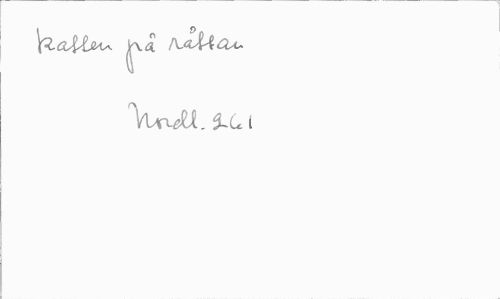 katten på råttan
Nordl. 261